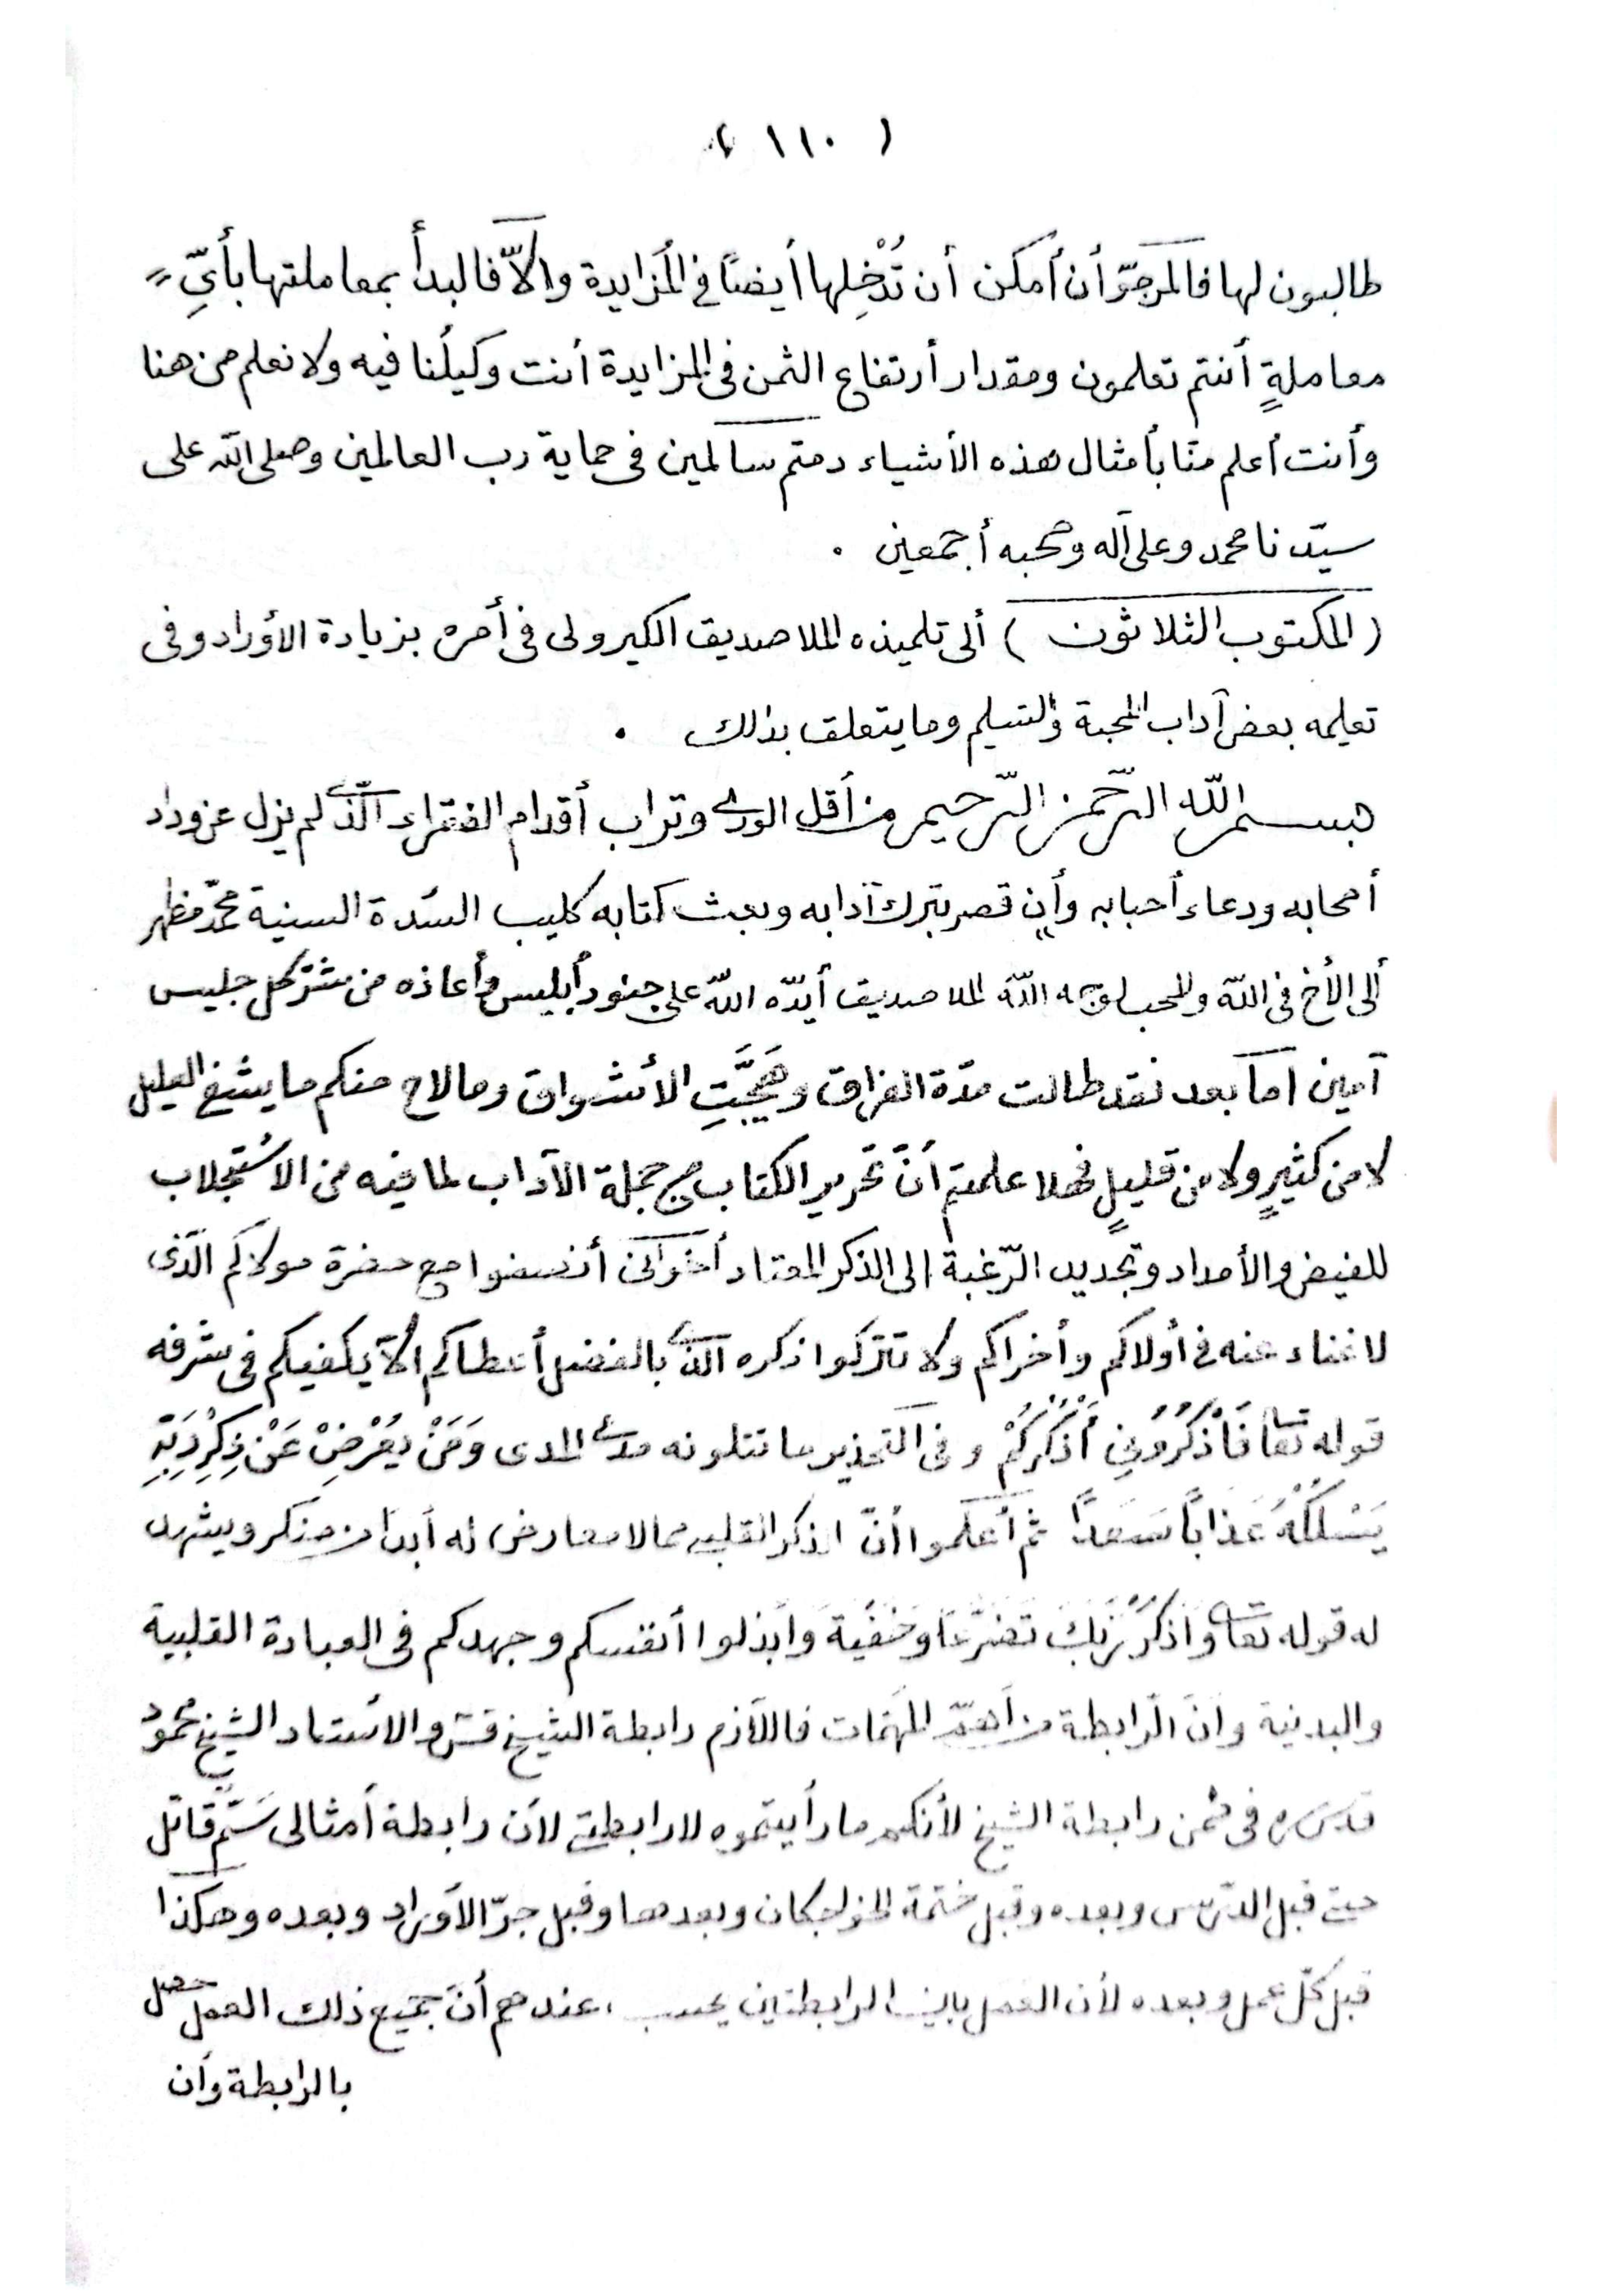 ( ١١٠ )
طالبون لها فالمرجوّ أن أمكن أن تُدْخِلها أيضًا في المُزايدة والاّ فالبدأ بمعاملتها بأيِّ
معاملةٍ أنتم تعلمون ومقدار أرتفاع الثمن فى المزايدة أنت وكيلُنا فيه ولا نعلم من هنا
وأنت أعلم منّا بأمثال هذه الأشياء دمتم سالمين فى حماية رب العالمين وصلى الله على
سيّدنا محمد وعلى آله وصحبه أجمعين .
( المكتوب الثلاثون ) ألى تلميذه الملا صديق الكيرولى فى أمره بزيادة الأوراد وفى
تعليمه بعض آداب المحبة والتسليم وما يتعلق بذلك .
بسم الله الرّحمن الرّحيم من أقل الورى وتراب أقدام الفقراء الّذى لم يزل عن وداد
أصحابه ودعاء أحبابه وأن قصر بترك آدابه وبعث كتابه كليب السّدة السنية محمّد مظهر
ألى الأخ فى الله والمحب لوجه الله الملا صديق أيدّه الله على جنود أبليس وأعاذه من شرّ كل جليس
آمين أما بعد فقد طالت مدّة الفراق وهَيَّجَتِ الأشواق وما لاح منكم ما يشفى العليل
لا من كثيرٍ ولا من قليلٍ فهلا علمتم أنّ تحرير الكتاب من جملة الآداب لما فيه من الاسْتجلاب
للفيض والأمداد وتجديد الرّغبة الى الذكر المعتاد أخوانى أنهضوا مع حضرة مولاكم الّذى
لا غناء عنه فى أولاكم وأخراكم ولا تتركوا ذكره الذى بالفضل أعطاكم ألا يكفيكم فى شرفه
قوله تعا فَاُذْكُرُونِى أَذْكُرْكُمْ وفى التحذير ما تتلونه مدى المدى وَمَنْ يُعْرِضْ عَنْ ذِكْرِ رَبِّهِ
يَسْلُكْهُ عَذَاباً صَعَداً ثم أعلموا أنّ الذكر القلبى مما لا معارض له أبدا من منكر ويشهد
له قوله تعا وَاذْكُرْ رَبَّكَ تَضَرُّعًا وَخُفْيَةً وابذلوا أنفسكم وجهدكم فى العبادة القلبية
والبدنية وانّ الرّابطة من أهمّ المهمّات فاللازم رابطة الشيخ قس والاستاد الشيخ محمود
قدس سره فى ضمن رابطة الشيخ لأنكم ما رأيتموه لا رابطتى لأن رابطة أمثالى سَمٌّ قاتل
حتى قبل الدّرس وبعده وقبل ختمة الخواجكان وبعدها وقبل جرّ الأوراد وبعده وهكذا
قبل كلّ عمل وبعده لأن العمل بين الرابطتين يحسب عندهم أنّ جميع ذلك العمل حصل
بالرابطة وأن